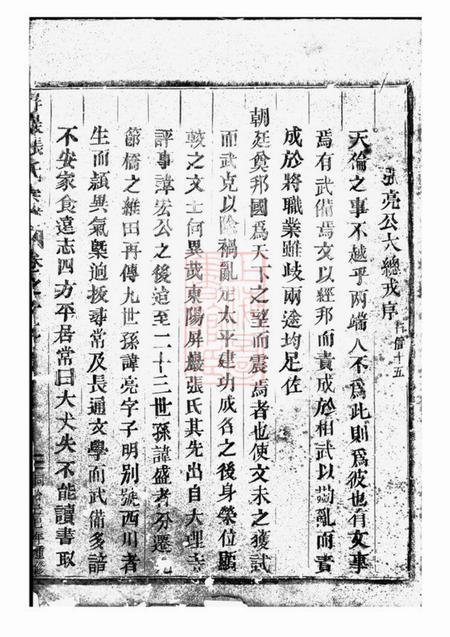 亮公大總戎序
行信十五
天倫之事不越乎兩端人不為此則為彼也有文事
焉有武備焉文以經邦而責成於相武以勘亂而責
成於將職業雖歧兩途均足佐
朝廷奠邦國為天下之望而震焉者也使文未之獲試
而武克以除禍亂定太平建功成名之後身榮位顯
較之文士何異哉東陽屏巖張氏其先出自大理寺
評事諱宏公之後迨至二十三世孫諱盛者分遷
節橋之維田再傳九世孫諱亮字子明別號西川者
生而頴異氣槩逈拔尋常及長通文學而武備多諳
不安家食遠志四方平居常曰大丈夫不能讀書取
屏巖張氏宗